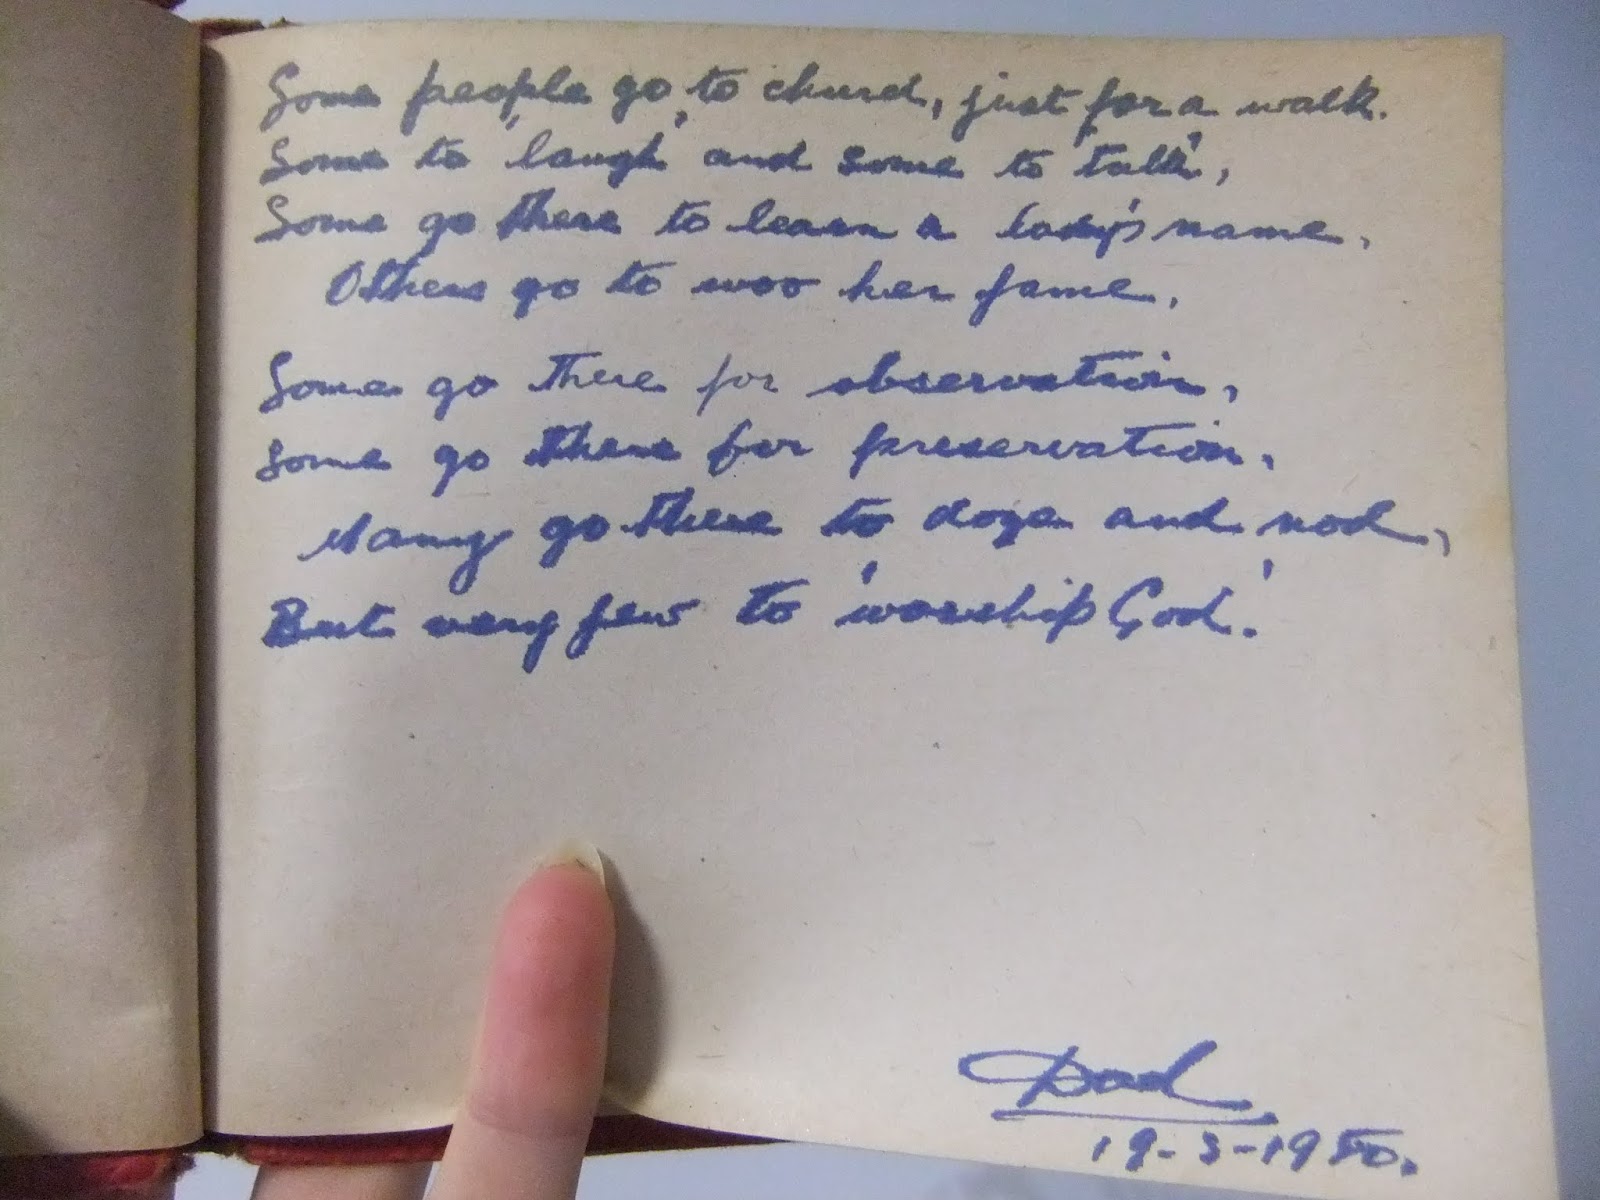 Some people go to church, just for a walk.
Some to 'laugh' and some to 'talk',
Some go there to learn a lady's name,
Others go to woo her fame,
Some go there for observation,
Some go there for preservation,
Many go there to doze and nod,
But very few to 'worship God.'
Dad
19-3-1950.